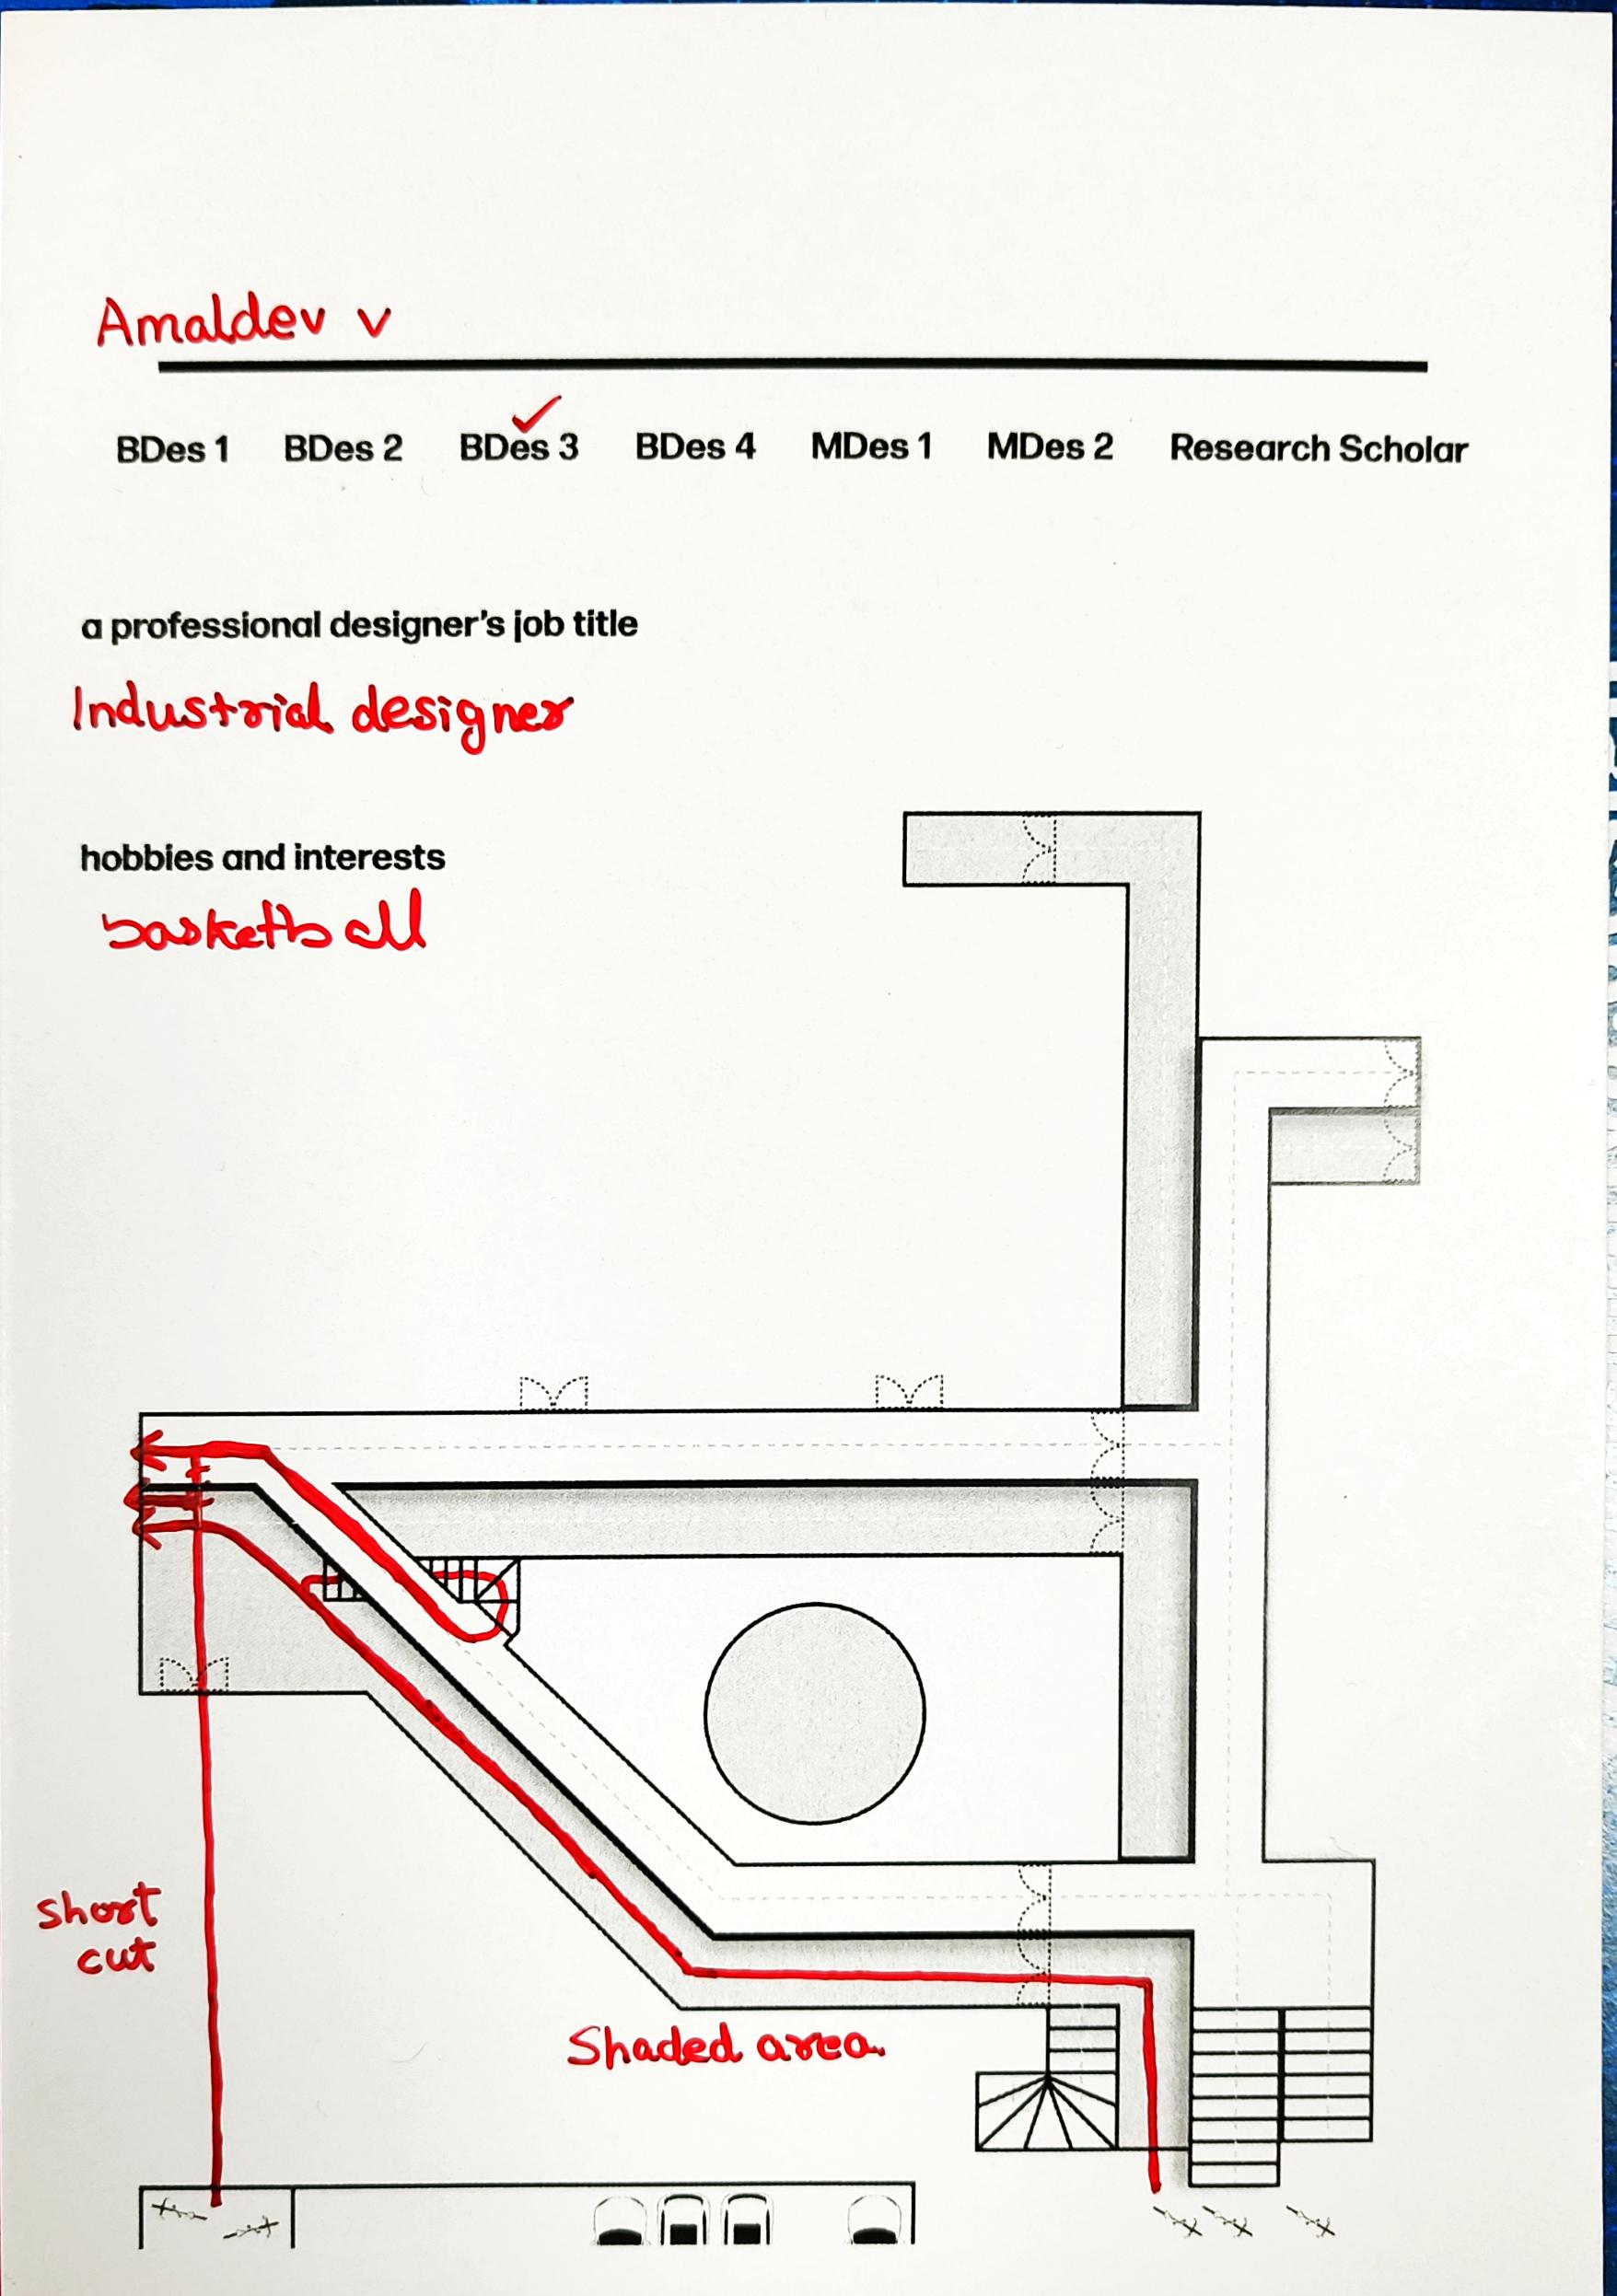 Amaldev v
BDes 1 BDes 2 BDes 3 BDes 4 MDes 1 MDes 2 Research Scholar
a professional designer's job title
Industrial designer
hobbies and interests
basketball
short
cut
Shaded area.